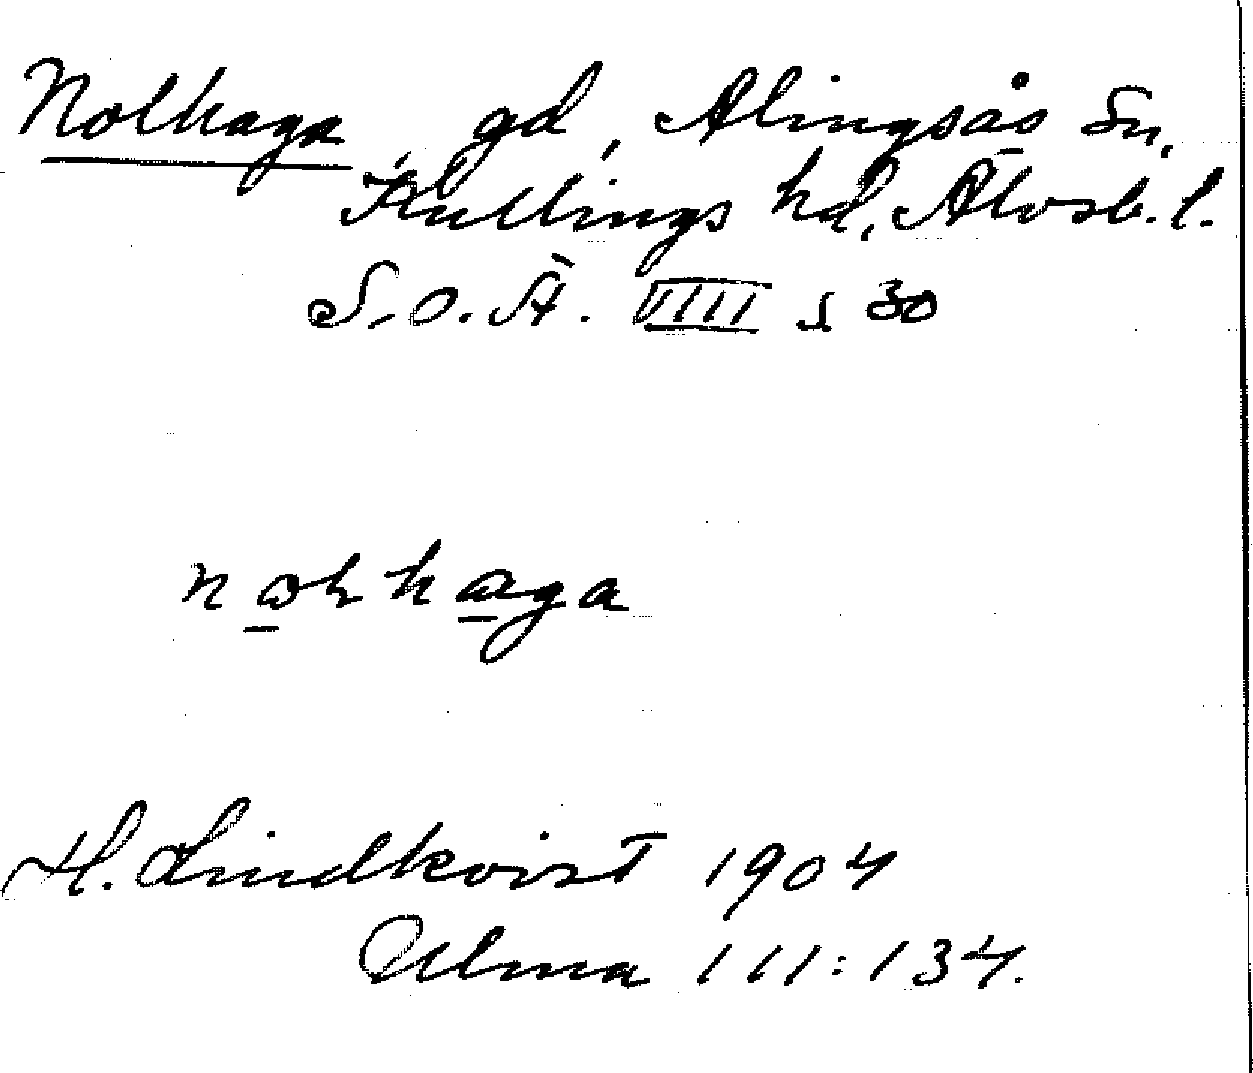 Nolhaga, gd, Alingsås sn,
Kullings hd, Älvsb. l.
S. O. Ä. VIII s 30
H. Lindkvist 1904
Ulma 111:134.